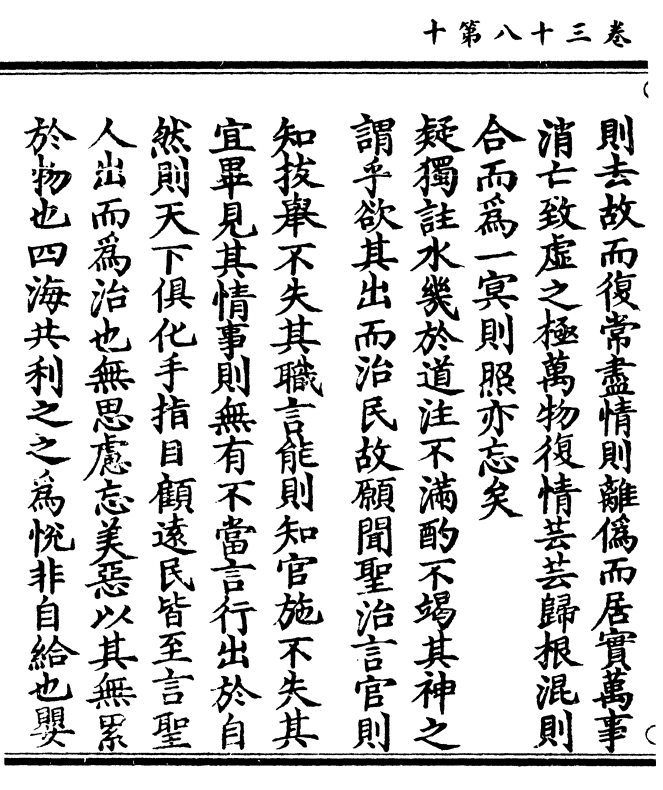 卷三十八第十
則去故而復常盡情則離僞而居實萬事
消亡致虛之極萬物復情芸芸歸根混則
合而爲一冥則照亦忘矣
疑獨註水幾於道注不滿酌不竭其神之
謂乎欲其出而治民故願聞聖治言官則
知拔舉不失其職言能則知官施不失其
宜畢見其情事則無有不當言行出於自
然則天下俱化手指目顧遠民皆至言聖
人出而爲治也無思慮忘美惡以其無累
於物也四海共利之之爲悅非自給也嬰